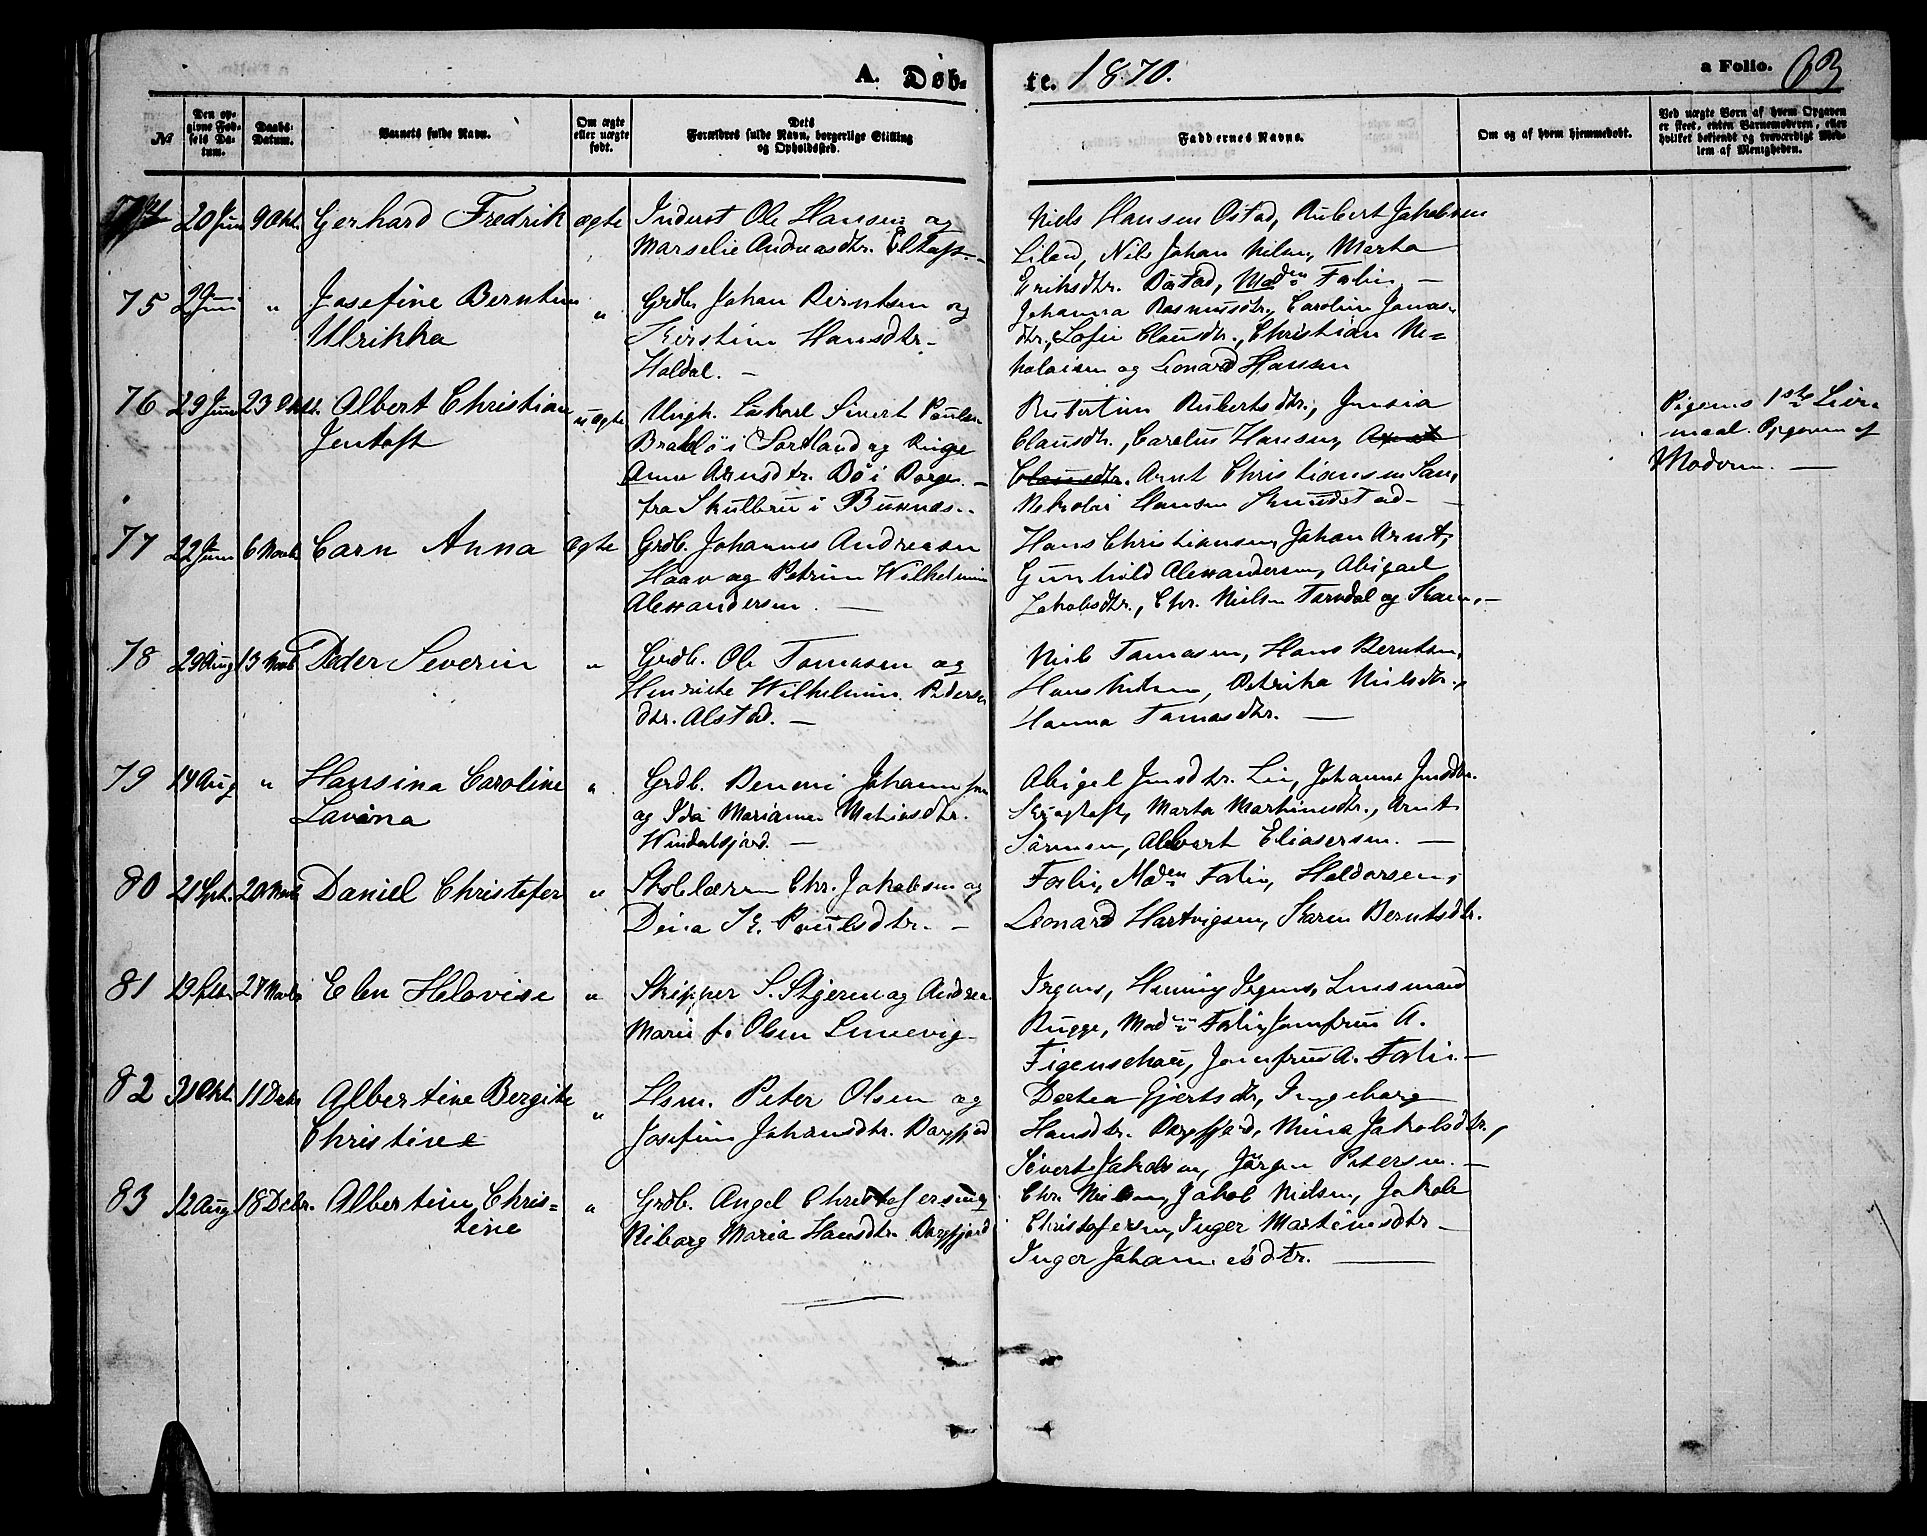 A. Døb-
te. 1870.
a Folio. 63
№
Den opgivne Fødsels Datum.
Daabs-Datum.
Barnets fulde Navn.
Om ægte eller uægte født.
Dets Forældres fulde Navn, borgerlige Stilling og Opholdssted.
Faddernes Navne.
Om og af hvem hjemmedøbt.
Ved uægte Børn af hvem Opgaven er skeet, enten Barnemoderen, eller hvilket bekjendt og troværdigt Medlem af Menigheden.
74 20 Juni 9 Okt. Gerhard Fredrik ægte Inderst Ole Hansen og
Marselie Andreasdtr. Eltoft.
Niels Hansen Østad, Rubert Jakobsen
Liland, Nils Johan Nilsen, Marta
Eriksdtr. Bøstad, Madn Forlin
75 2 Juni " Josefine Berntine " Grdb. Johan Berntsen og
Ulrikka Kirstine Hansdtr.
Holdal.
Johanna Rasmusdtr., Caroline Jonas-
dtr., Sofie Clausdtr., Christian Ni=
kolaisen og Leonard Hansen
76 29 Juni 23 Okt. Albert Christian uægte Ungk. Løskarl Sivert Paulsen
Jentoft Brakdlø i Sortland og Pige
Anne Arnsdtr. Bø i Borge
fra Skulbru i Buknæs.
Rubertine Rubertsdtr., Jensia
Clausdtr., Carelus Hansen,
Clausdtr. Arnt Christiansen San,
Nikolai Hansen Smedstad
Pigens 1ste Leier-
maal. Opgaven af
Moderen.
77 22 Juni 6 Novb. Carn Anna ægte Grdb. Johannes Andreasen
Haav og Petrine Wilhelmine
Alexandersen.
Hans Christiansen, Johan Arnt,
Gunhild Alexandersen, Abigael
Jakobsdtr., Chr. Nielsen Farsdal og Kone.
78 29 Aug 13 Novb Peder Severin " Grdb. Ole Tomasen og
Henrikke Wilhelmine Peders
dtr. Alstad.
Niels Tomasen, Hans Berntsen,
Hans Nilsen, Petrika Nielsdtr.,
Hanna Tomasdtr.
79 14 Aug " Hansina Caroline " Grdb. Benoni Johannsen
Lavina og Ida Marianna Mathiasdtr.
Windalsjord.
Abigel Jensdtr. Lie, Johanna Jensdtr.
Skogtoft, Marta Martinusdtr., Arnt
Sörensen, Albert Eliasersen.
80 21 Spt. 20 Novb Daniel Christofer " Skolelærer Chr. Jakobsen og
Dina K. Poulsdtr.
Forlin, Maden Forlin, Haldorsen,
Leonard Hartvigsen, Karen Berntsdtr.
81 19 27 Novb Elen Helovise " Skipper S. Stjeren og Andrea
Marie f. Olsen Lensevig
Irgens, Henning Irgens, Lensmand
Bugge, Madn Forlin, Jomfrue A.
Figenschou, Jomfrue A. Forlin
82 31 Okt. 11 Decbr Albertine Bergite " Hsm. Peter Olsen og
Christine Josefine Johansdtr. Borgfjord
Dortea Gjertsdtr, Ingeborg
Hansdtr. Borgfjord, Mina Jakobsdtr.,
Sivert Jakobsen, Jörgen Petersen.
83 12 Aug 18 Decbr. Albertine Chris= " Grdb. Angel Christofersen og
tine Riborg Maria Hansdtr. Borgfjord
Chr. Nielsen, Jakob Nielsen, Jakob
Christofersen, Inger Martinusdtr
Inger Johannesdtr.